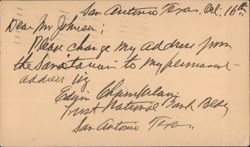 San Antonio Texas, Oct. 16th
Dear Mr Johnson:
Please change my address from
the Sanatarium to my permanent
address
Edwin Chamberlain
Trust National Bank Bldg
San Antonio Texas.